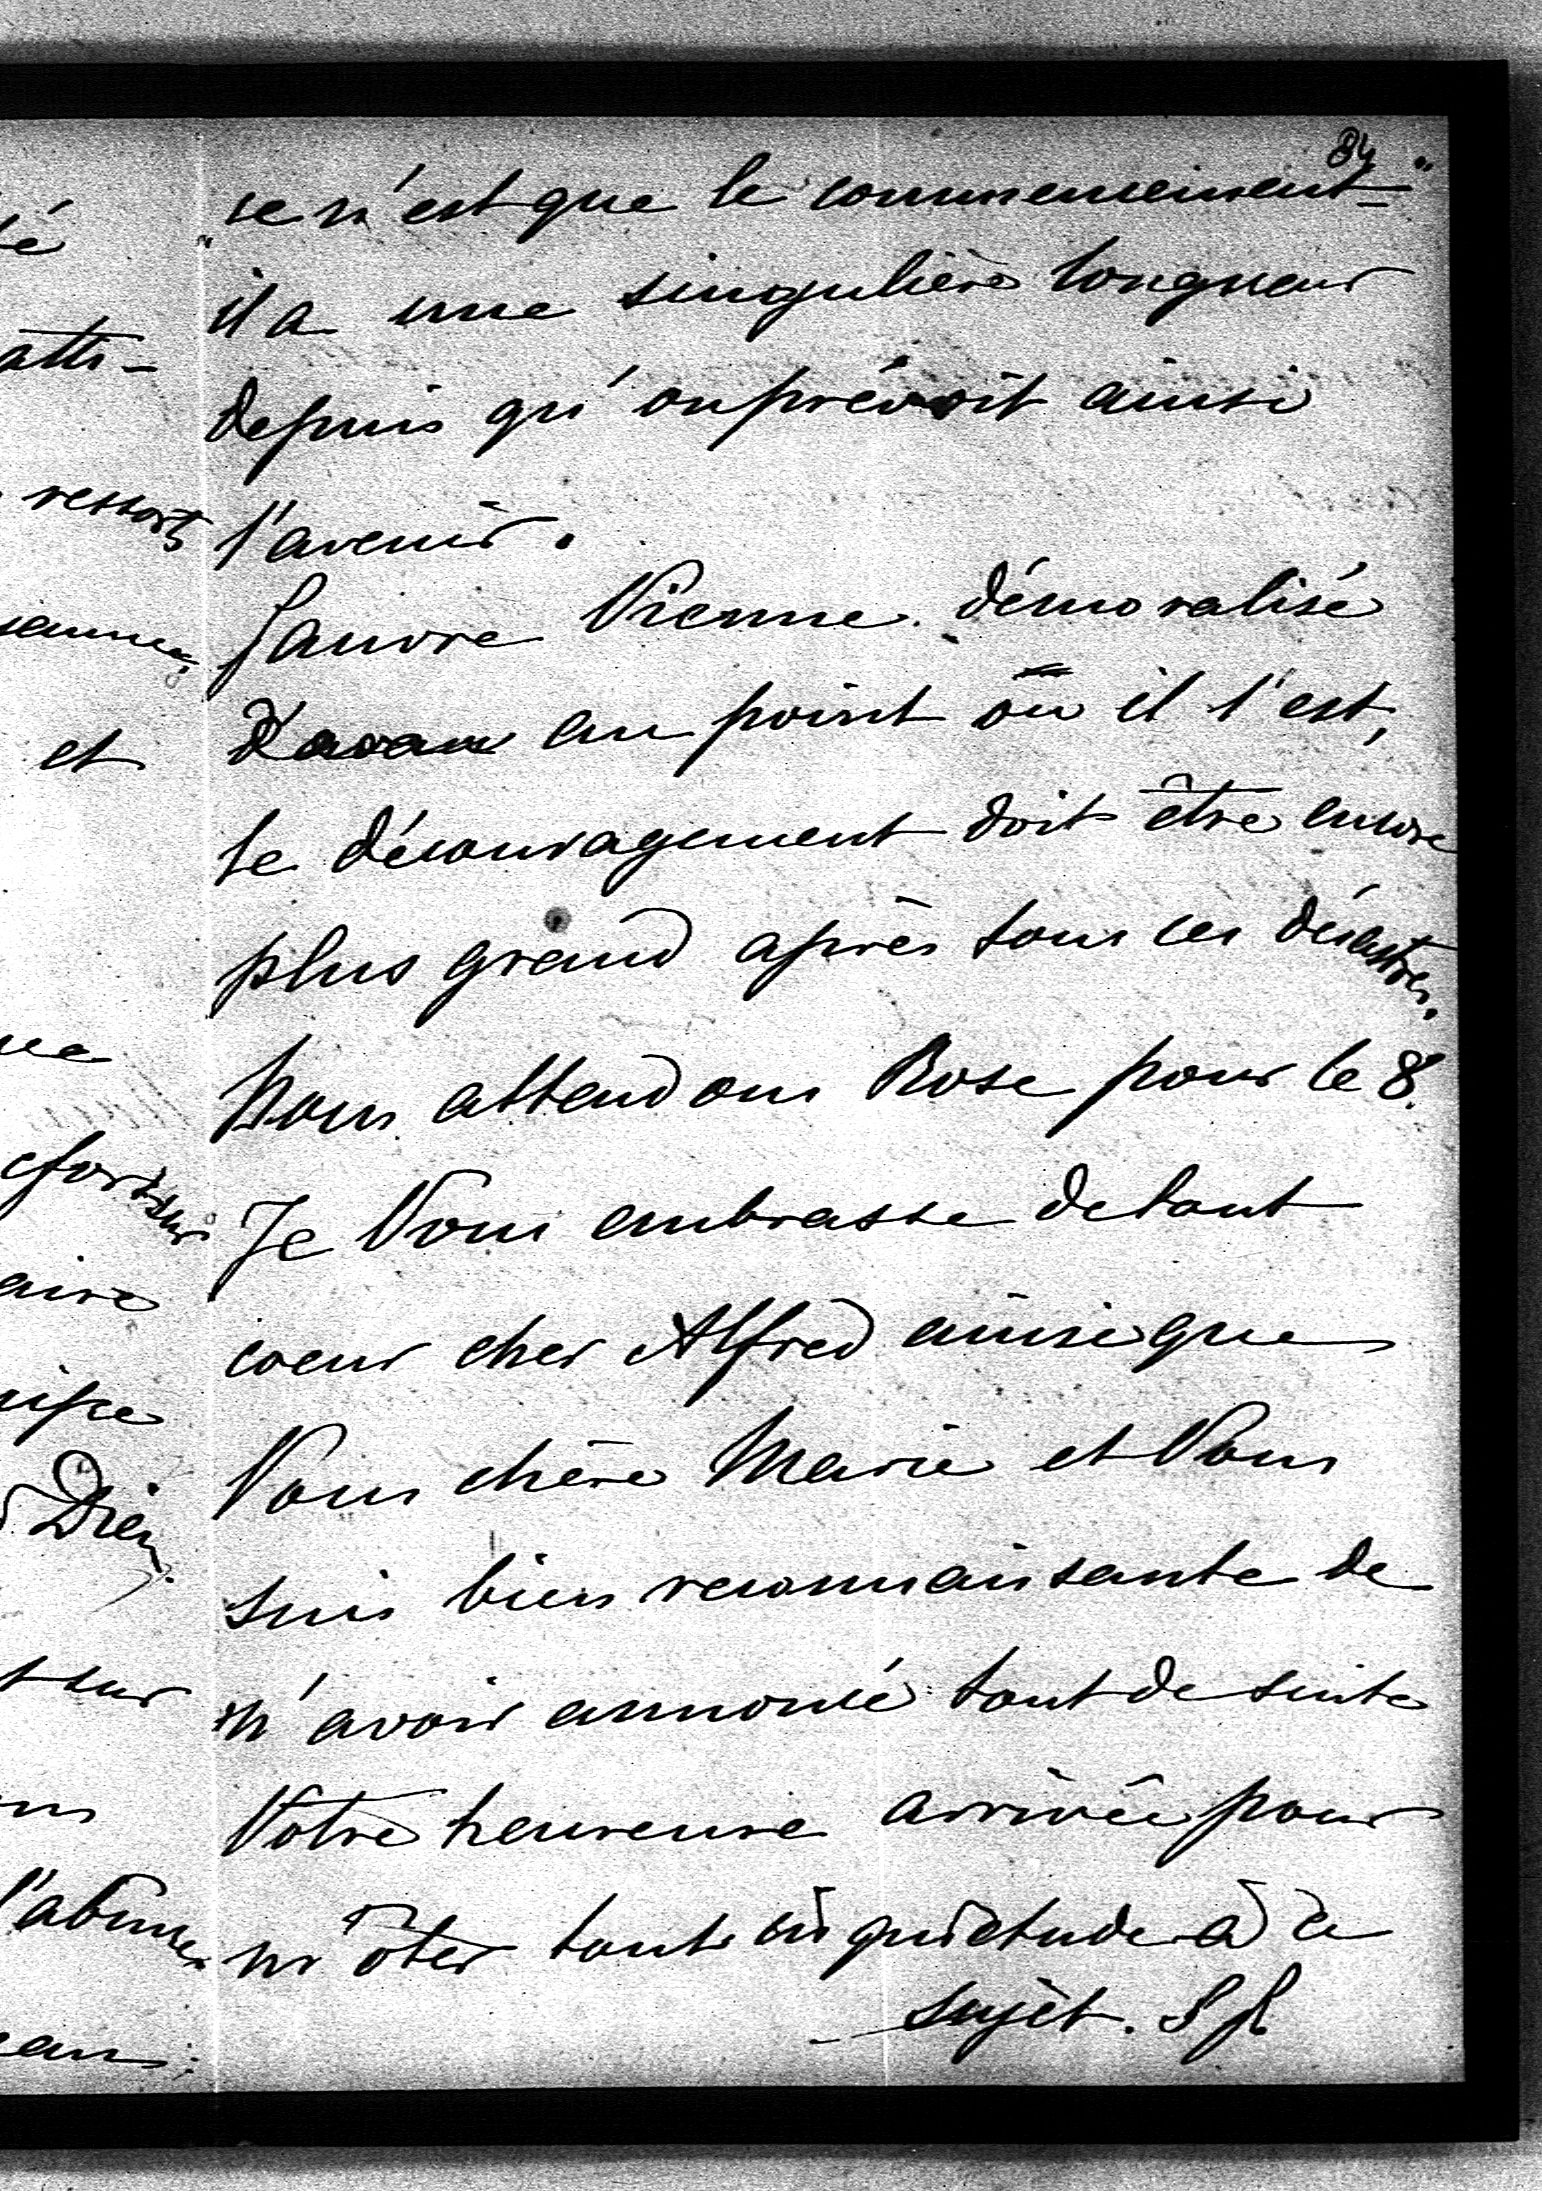 84
"ce n'est que le commencement-"
il a une singulière longueur
depuis qu'on prévoit ainsi
l'avenir.
Pauvre Vienne. démoralisé
au point où il l'est,
le découragement doit être encore
plus grand après tous ces désastres.
Nous attendons Rose pour le 8.
Je Vous embrasse de tout
coeur cher Alfred ainsi que
Vous chère Marie et Vous
suis bien reconnaissante de
m'avoir annoncé tout de suite
Votre heureuse arrivée pour
m'ôter toute inquiétude à ce
sujèt.
té
atti-
ressort
et
aire
Dieu.
sur